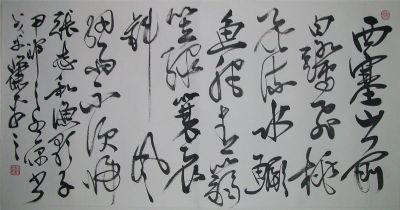 西塞山前
白鷺飛桃
花流水鱖
魚肥青箬
笠綠蓑衣
斜風
細雨不須歸
張志和漁歌子
甲申